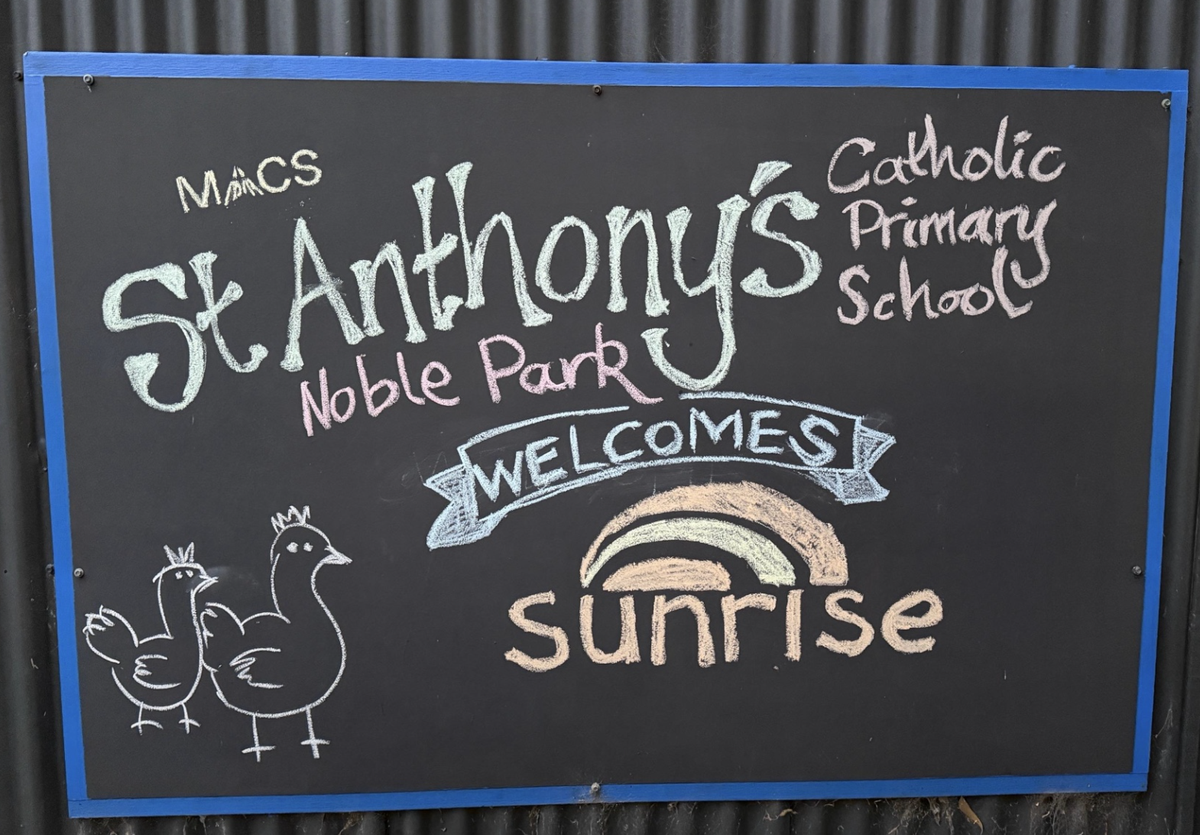 MACS
St Anthony's
Catholic
Primary
School
Noble Park
WELCOMES
sunrise